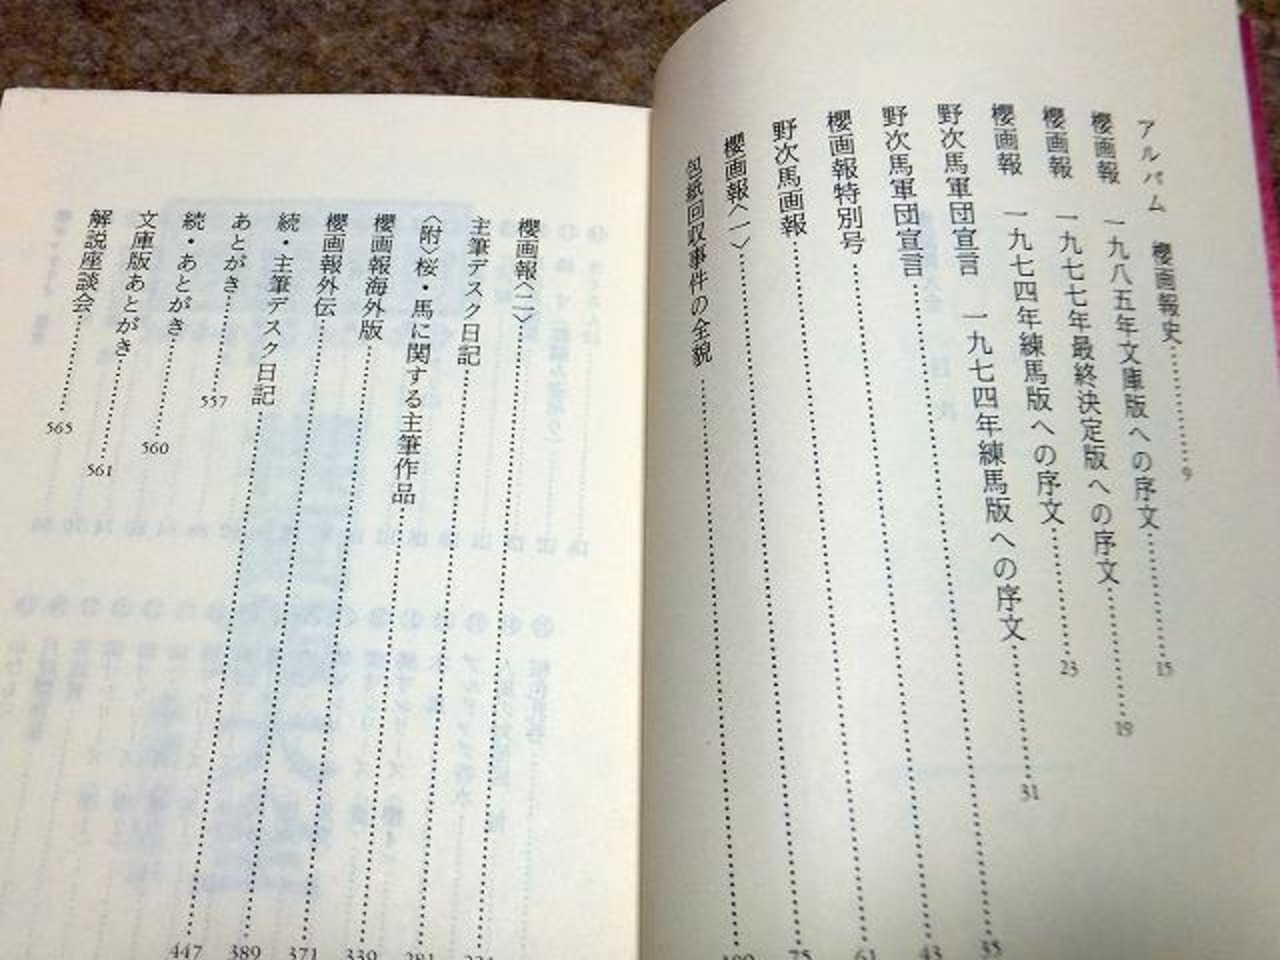 アルバム 櫻画報史……9
櫻画報 一九八五年文庫版への序文……15
櫻画報 一九七七年最終決定版への序文……19
櫻画報 一九七四年練馬版への序文……23
野次馬軍団宣言 一九七四年練馬版への序文……31
野次馬軍団宣言……35
櫻画報特別号……43
野次馬画報……61
櫻画報〈一〉……75
包紙回収事件の全貌……
櫻画報〈二〉……
主筆デスク日記……
〈附〉桜・馬に関する主筆作品……281
櫻画報海外版……339
櫻画報外伝……371
続・主筆デスク日記……389
あとがき……557
続・あとがき……560
文庫版あとがき……561
解説座談会……565
447